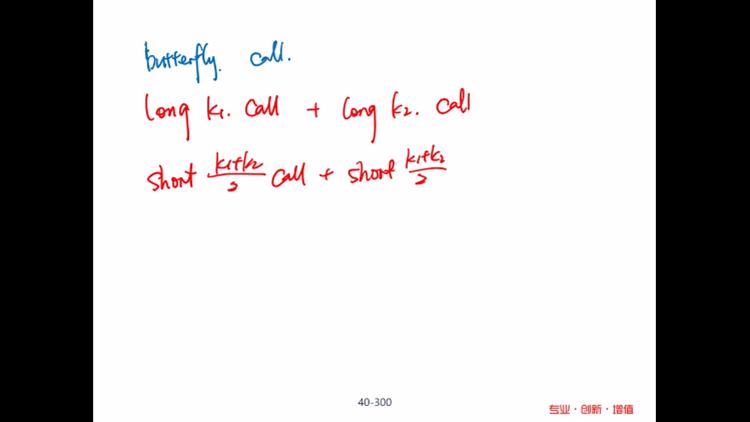 butterfly. call.
long k1. call + long k2. call
short k1+k2/2 call + short k1+k2/2
40-300
专业·创新·增值